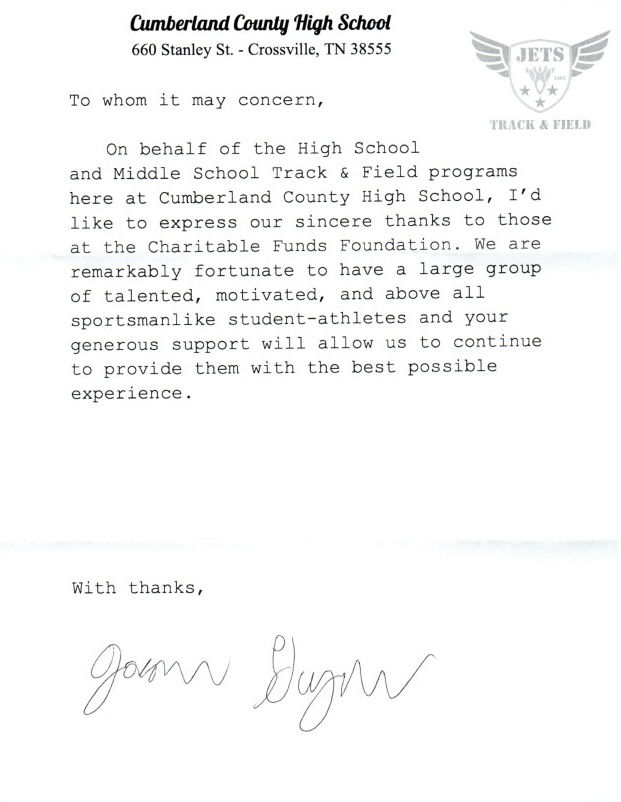 Cumberland County High School
660 Stanley St. - Crossville, TN 38555
JETS
TRACK & FIELD
To whom it may concern,
On behalf of the High School
and Middle School Track & Field programs
here at Cumberland County High School, I'd
like to express our sincere thanks to those
at the Charitable Funds Foundation. We are
remarkably fortunate to have a large group
of talented, motivated, and above all
sportsmanlike student-athletes and your
generous support will allow us to continue
to provide them with the best possible
experience.
With thanks,